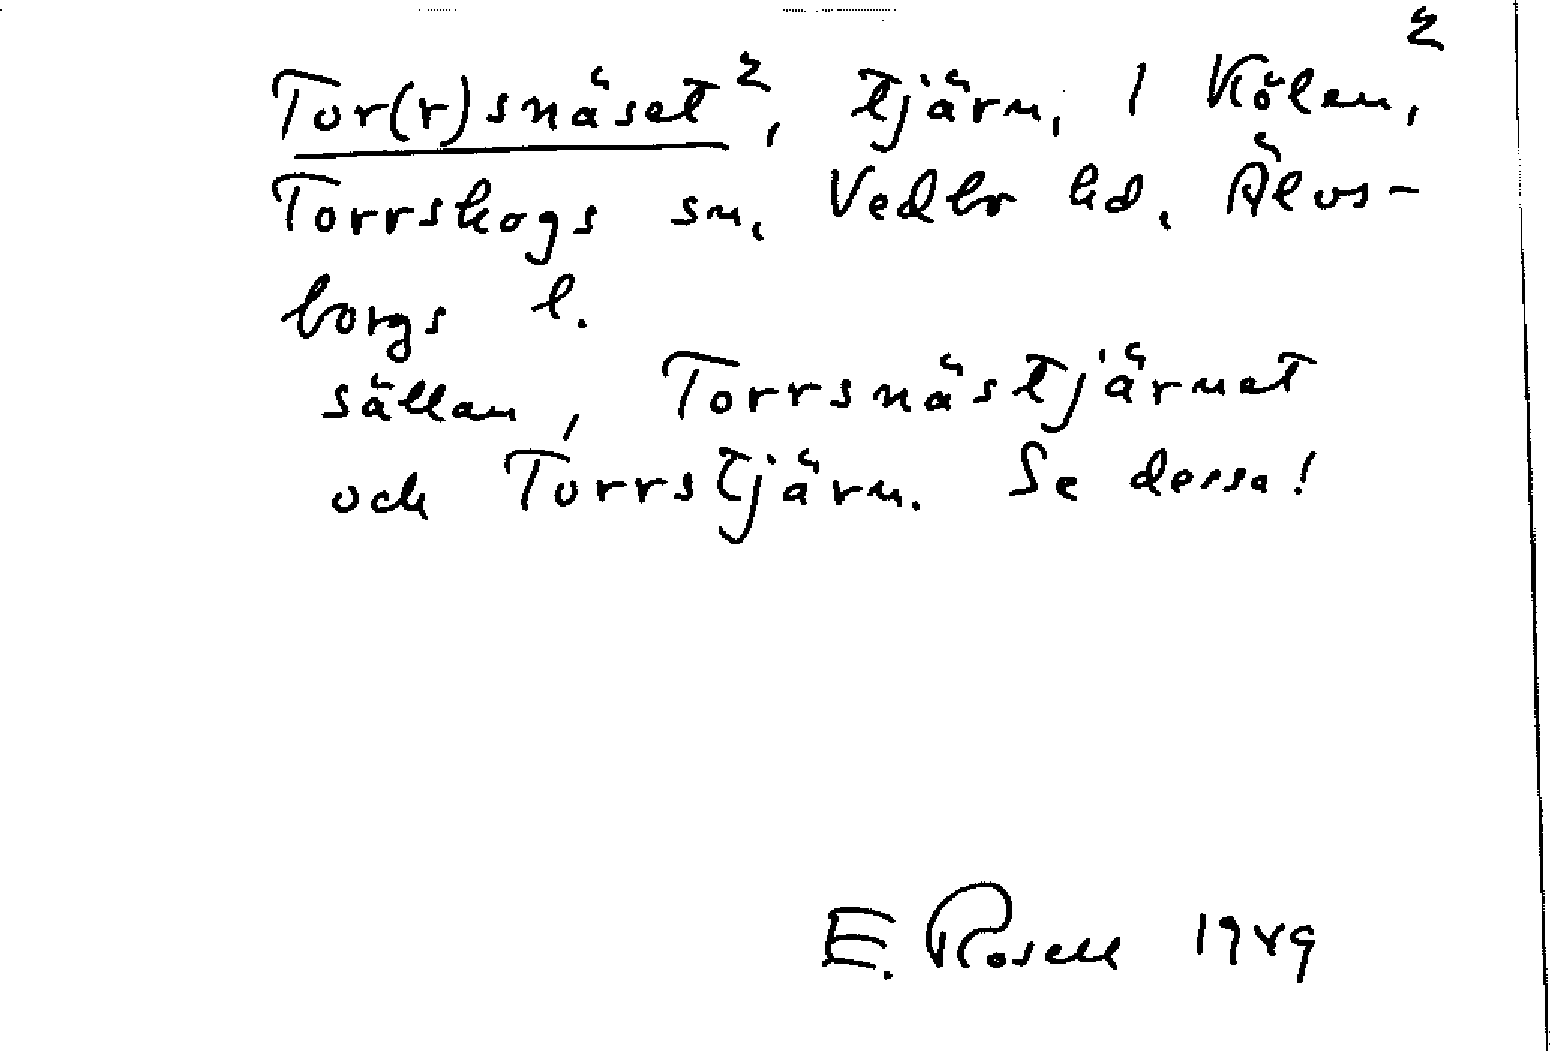 Tor(r)snäset², tjärn, 1 Kölen,²
Torrskogs sn, Vedbo hd. Älvs-
borgs l.
sällan, Torrsnästjärnet
och Torrstjärn. Se dessa!
E. Rosell 1949